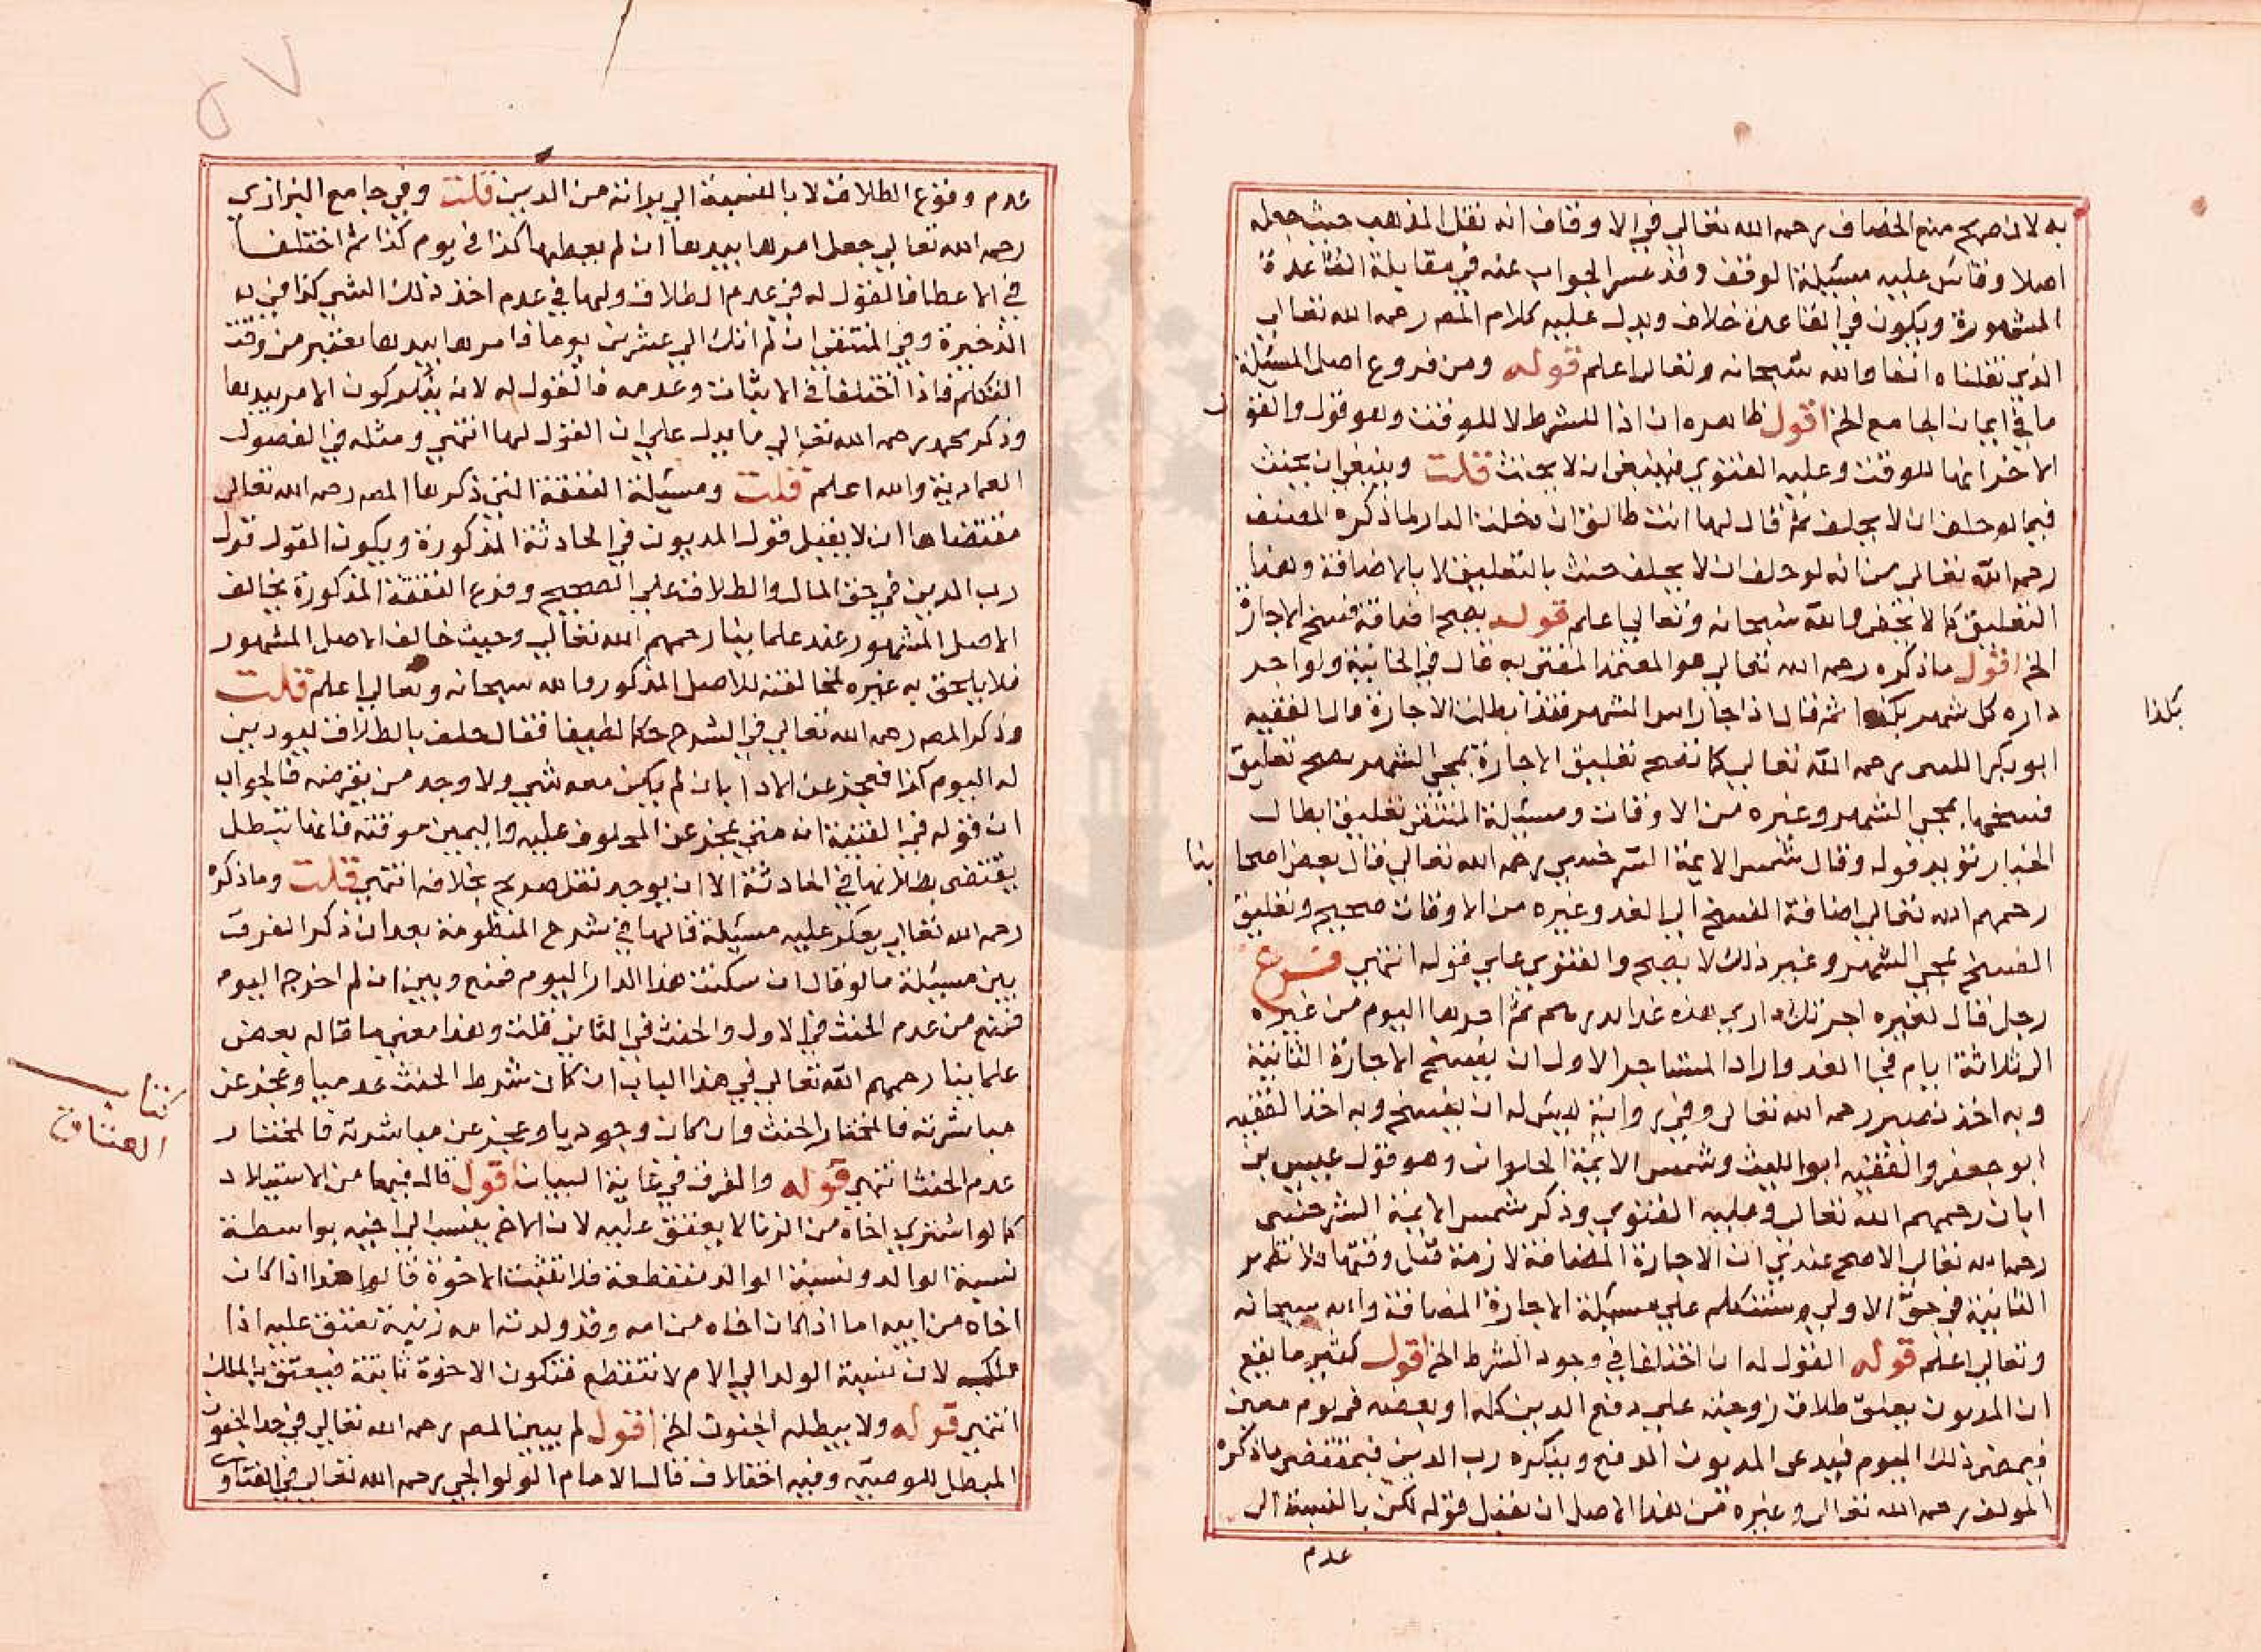 به لانه صريح منع الخصاف رحمه الله تعالى في الاوقاف انه نقل المذهب حيث جعله
اصلا وقاس عليه مسئلة الوقف وقد عسر الجواب عنه في مقابلة القاعدة
المشهورة ويكون في القاعدة خلاف ويدل عليه كلام المصـ رحمه الله تعالى
الذي نقلناه انفا والله سبحانه وتعالى اعلم قوله ومن فروع اصل المسئلة
ما في ايمان الجامع الخ اقول ظاهره ان اذا للشرط لا للوقت وهو قول والقول
الاخر انها للوقت وعليه الفتوى فينبغي ان لا يحنث قلت وينبغي ان يحنث
فيما لو حلف ان لا يحلف ثم قال لها انت طالق ان دخلت الدار لما ذكره المصنف
رحمه الله تعالى من انه لو حلف ان لا يحلف حنث بالتعليق لا بالاضافة وهذا
التعليق كما لا يخفى والله سبحانه وتعالى اعلم قوله يصح اضافة فسخ الاجارة
الخ اقول ماذكره رحمه الله تعالى هو المعتمد المفتى به قال في الخانية ولو اجر
داره كل شهر بكذا ثم قال اذا جا راس الشهر فقد ابطلت الاجارة قال الفقيه
بكذا
ابو بكر البلخي رحمه الله تعالى كما تصح تعليق الاجارة بمجي الشهر يصح تعليق
فسخها بمجي الشهر وغيره من الاوقات ومسئلة المنتقى تعليق ابطال
الخيار تؤيد قوله وقال شمس الايمة السرخسي رحمه الله تعالى قال بعض اصحابنا
رحمهم الله تعالى اضافة الفسخ الى الغد وغيره من الاوقات صحيح وتعليق
الفسخ بمجي الشهر وغير ذلك لا يصح والفتوى على قوله انتهى فرع
رجل قال لغيره اجرتك داري هذه غدا بدرهم ثم اجرها اليوم من غيره
الى ثلاثة ايام فجا الغد واراد المستاجر الاول ان يفسخ الاجارة الثانية
وبه اخذ نصير رحمه الله تعالى وفي رواية ليس له ان يفسخ وبه اخذ الفقيه
ابو جعفر والفقيه ابو الليث وشمس الايمة الحلواني وهو قول عيسى بن
ابان رحمهم الله تعالى وعليه الفتوى وذكر شمس الايمة السرخسي
رحمه الله تعالى الاصح عندي ان الاجارة المضافة لازمة قبل وقتها فلا تظهر
الثانية في حق الاولى وسنتكلم على مسئلة الاجارة المضافة والله سبحانه
وتعالى اعلم قوله القول له ان اختلفا في وجود الشرط الخ اقول كثير ما يقع
ان المديون يعلق طلاق زوجته على دفع الدين كله او بعضه في يوم معين
فيمضي ذلك اليوم فيدعي المديون الدفع وينكره رب الدين فبمقتضى ماذكره
المولف رحمه الله تعالى وغيره من هذا الاصل ان يقبل قوله لكن بالنسبة الى
عدم
٥٧
عدم وقوع الطلاق لا بالنسبة الى براته من الدين قلت وفي جامع البزازي
رحمه الله تعالى جعل امرها بيدها ان لم يعطها كذا في يوم كذا ثم اختلفا
في الاعطا فالقول له في عدم الطلاق ولها في عدم اخذ ذلك الشي كذا في
الذخيرة وفي المنتقى ان لم اتك الى عشرين يوما فامرها بيدها يعتبر من وقت
التكلم فاذا اختلفا في الاتيان وعدمه فالقول له لانه ينكر كون الامر بيدها
وذكر محمد رحمه الله تعالى ما يدل على ان القول لها انتهى ومثله في الفصول
العمادية والله اعلم قلت ومسئلة النفقة التي ذكرها المصـ رحمه الله تعالى
مقتضاها ان لا يقبل قول المديون في الحادثة المذكورة ويكون القول قول
رب الدين في حق المال والطلاق على الصحيح وفرع النفقة المذكورة يخالف
الاصل المشهور عند علماينا رحمهم الله تعالى وحيث خالف الاصل المشهور
فلا يلحق به غيره لمخالفته للاصل المذكور والله سبحانه وتعالى اعلم قلت
وذكر المصـ رحمه الله تعالى في الشرح حكما لطيفا فقال حلف بالطلاق ليودين
له اليوم كذا فعجز عن الادا بان لم يكن معه شي ولا وجد من يقرضه فالجواب
ان قوله في القنية انه متى عجز عن المحلوف عليه واليمين موقتة فانها تبطل
يقتضي بطلانها في الحادثة الا ان يوجد نقل صريح بخلافه انتهى قلت وماذكره
رحمه الله تعالى يعكر عليه مسئلة قالها في شرح المنظومة بعد ان ذكر الفرق
بين مسئلة ما لو قال ان سكنت هذا الدار اليوم فمنع وبين ان لم اخرج اليوم
فمنع من عدم الحنث في الاول والحنث في الثاني قلت وهذا معنى ما قاله بعض
علماينا رحمهم الله تعالى في هذا الباب ان كان شرط الحنث عدميا وعجز عن
مباشرته فالمختار الحنث وان كان وجوديا وعجز عن مباشرته فالمختار
كتاب
العتاق
عدم الحنث انتهى قوله والفرق في غاية البيان اقول قال فيها من الاستيلاد
كما لو اشترى اخاه من الزنا لا يعتق عليه لان الاخ ينسب الى اخيه بواسطة
نسبة الوالد ونسبة الوالد منقطعة فلا تثبت الاخوة قالوا هذا اذا كان
اخاه من ابيه اما اذا كان اخاه من امه وقد ولدته امه زنية يعتق عليه اذا
ملكه لان نسبة الولد الى الام لا تنقطع فتكون الاخوة ثابتة فيعتق بالملك
انتهى قوله ولا يبطله الجنون الخ اقول لم يبين المصـ رحمه الله تعالى في حد الجنون
المبطل للوصية وفيه اختلاف قال الامام الولوالجي رحمه الله تعالى في الفتاوى